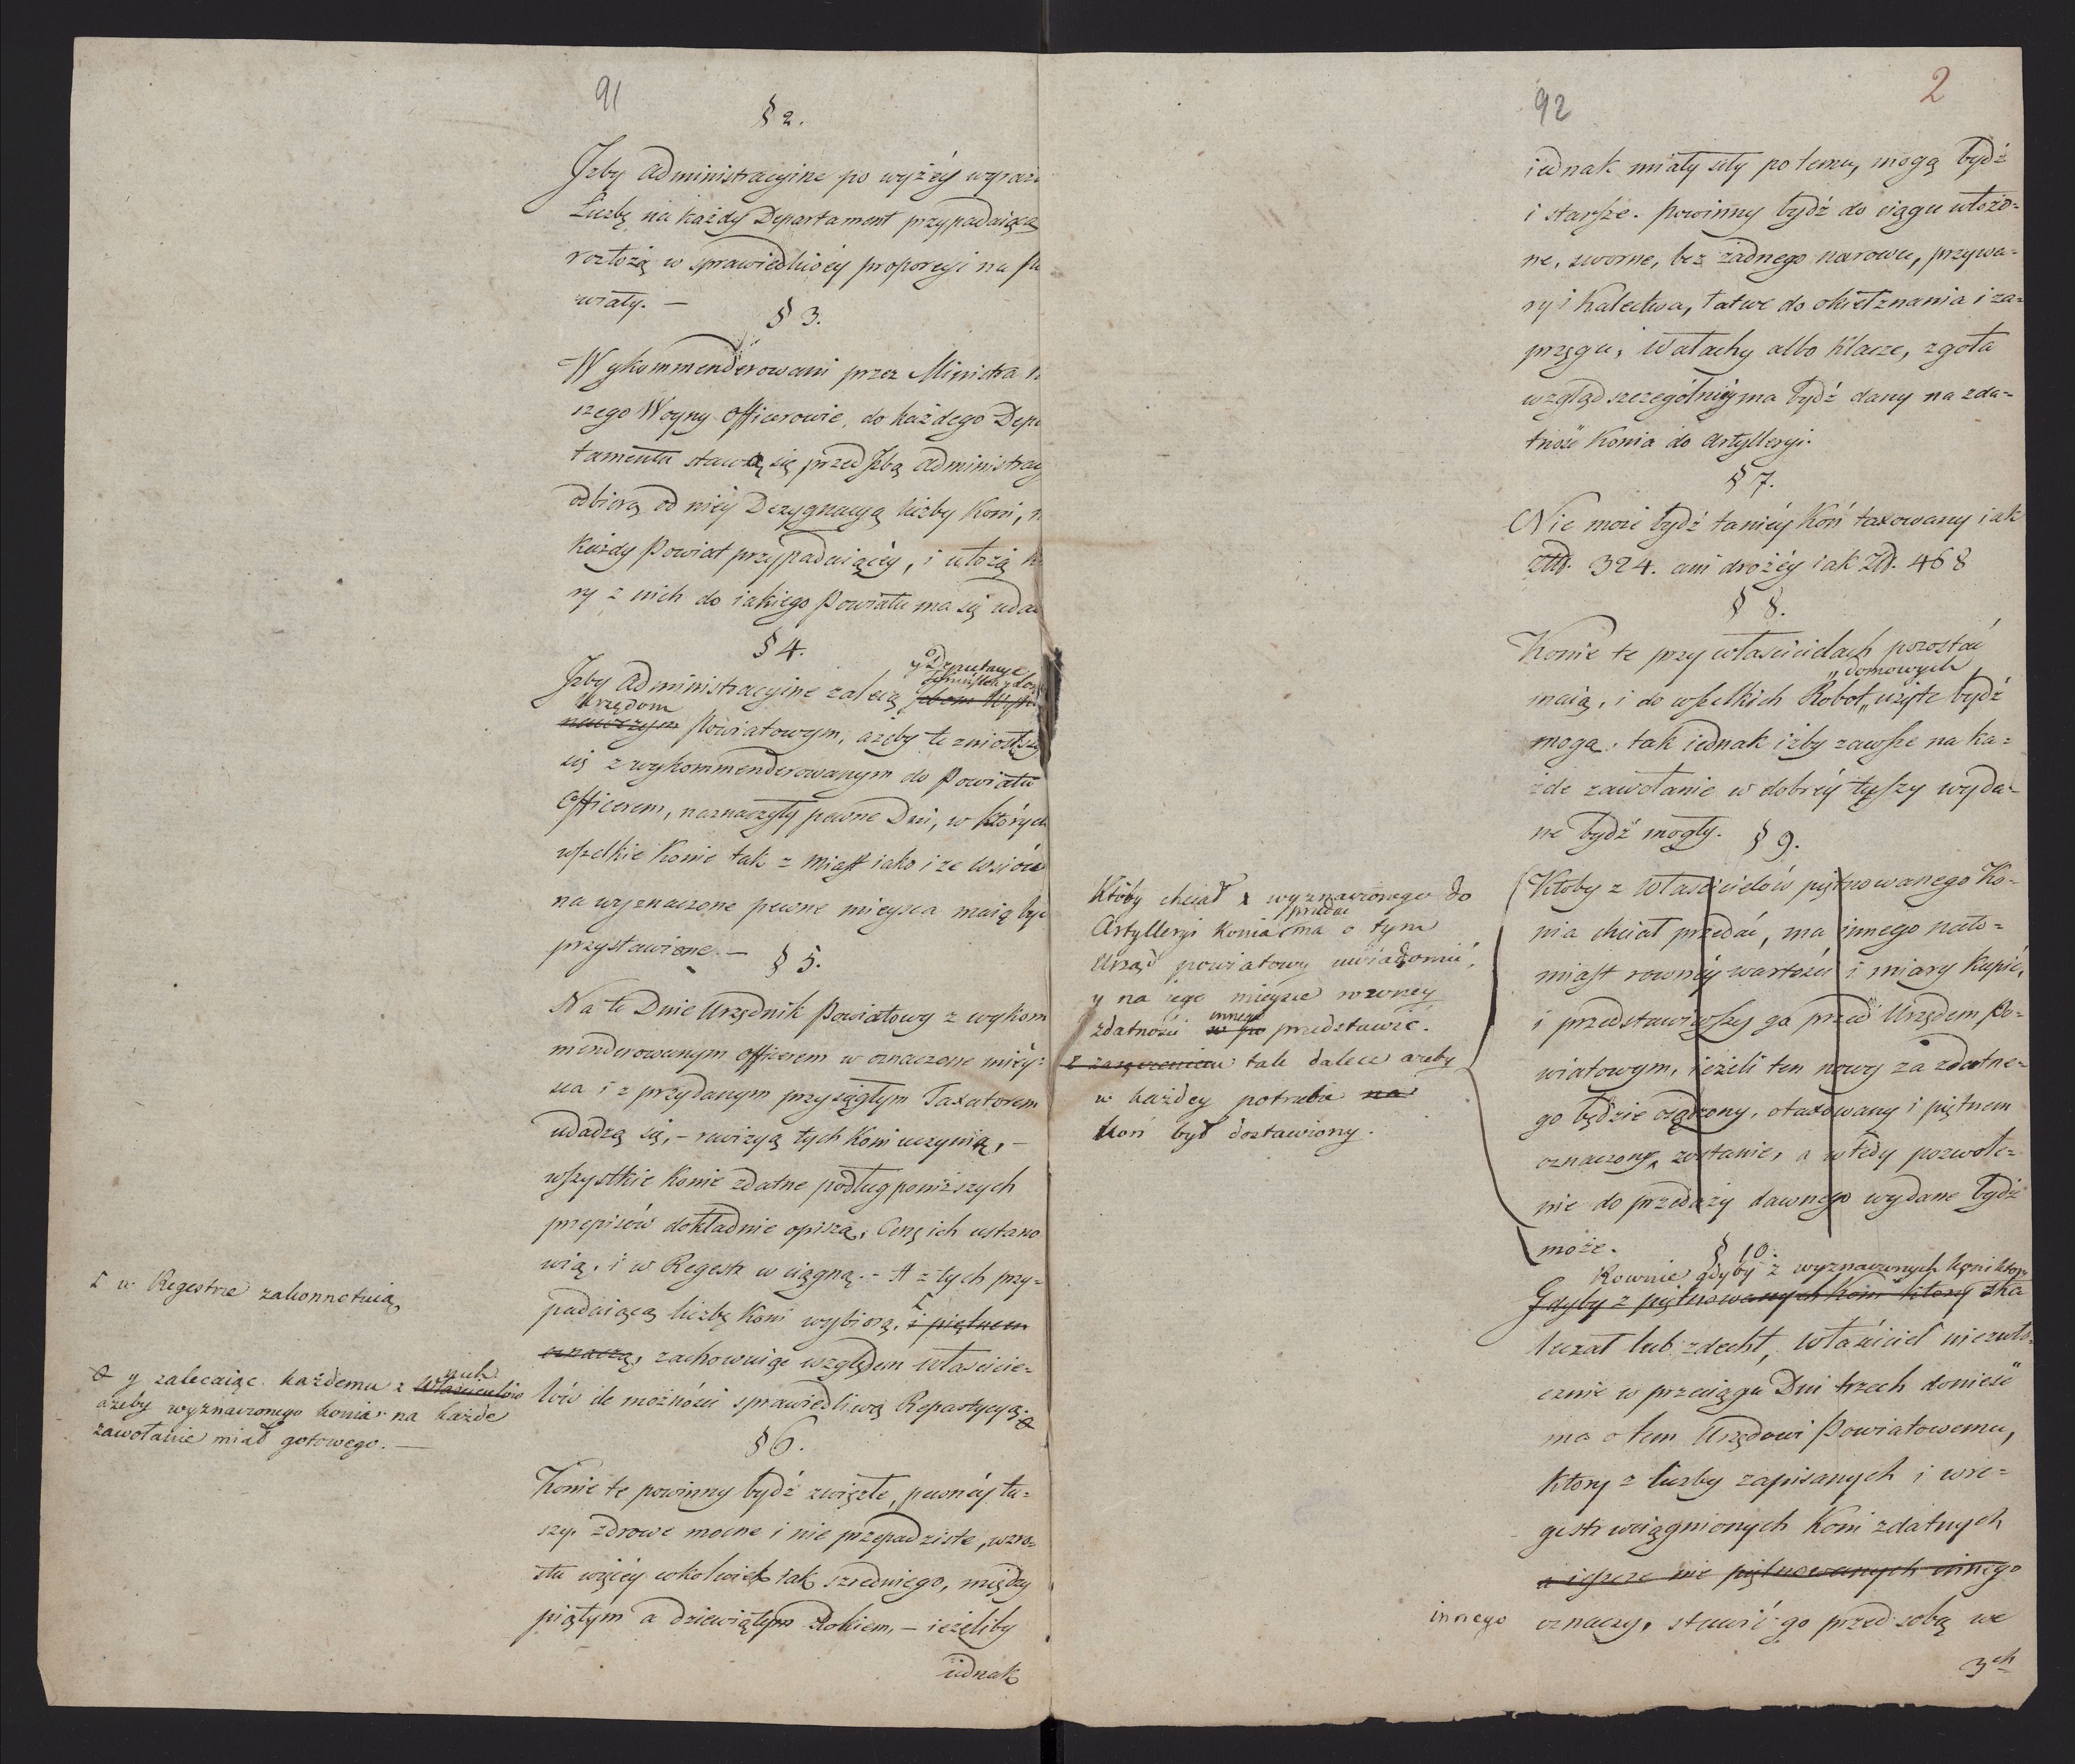 91
§ 2.
Jzby Administracyine po wyżéy wyraż
Liczbę na każdy Departament przypadaiącą
rozłożą w sprawiedliwéy proporcyi na Po
wiaty. —
§ 3.
Wykommenderowani przez Ministra N
szego Woyny Officerowie, do każdego Depa
tamentu stawią się przed Jzbą Administracy
odbiorą od niéy Dezygnacyą liczby Koni, n
Każdy Powiat przypadaiącéy, i ułożą kt
ry z nich do iakiego Powiatu ma się udać
§ 4.
Jzby Administracyine zalecą
Urzędom
Powiatowym, ażeby te zniosłszy
się z wykommenderowanym do Powiatu
Officerem, naznaczyły pewne Dni, w których
wszelkie Konie tak z Miast iako i ze Wsiów
na wyznaczone pewne mieysca maią być
przystawione. —
§ 5.
Na te Dnie Urzędnik Powiatowy z wykom
menderowanym Officerem w oznaczone miéy=
sca i z przydanym przysięgłym Taxatorem
udadzą się, — rewizyą tych Koni uczynią, —
wszystkie Konie zdatne podług poniższych
przepisów dokładnie opiszą, Cenę ich ustano
wią, i w Regestr wciągną. — A z tych przy=
padaiącą liczbę Koni wybiorą, i piętnem
oznaczą, zachowuiąc względem Właścicie=
lów ile możności sprawiedliwą Repartycyą.
§ 6.
Konie te powinny bydź zwięzłe, pewnéy tu=
szy, zdrowe mocne i nie przepadziste, wzro=
stu więcéy cokolwiek iak szredniego, między
piątym a dziewiątym Rokiem, — ieżeliby
iednak
w Regestrze zakonnotuią
y zalecaiąc każdemu z Właścicielów
nich
ażeby wyznaczonego konia na każde
zawołanie miał gotowego. —
92
2
iednak miały siły po temu, mogą bydź
i starsze. powinny bydź do ciągu ułożo=
ne, zworne, bez żadnego narowu, przywa=
ry i Kalectwa, łatwe do okiełznania i za=
przęgu, Wałachy albo Klacze, zgoła
wzgląd szczególniéy ma bydź dany na zda=
tność Konia do Artylleryi.
§ 7.
Nie może bydź taniéy Koń taxowany iak
Złł. 324. ani drożéy iak Złł. 468
§ 8.
Konie te przy właścicielach pozostać
„domowych
maią, i do wszelkich Robot „użyte bydź
mogą, tak iednak iżby zawsze na ka=
żde zawołanie w dobréy tuszy wyda=
ne bydź mogły.
§ 9.
Ktoby z Właścicielów piętnowanego Ko=
nia chciał przedać, ma innego nato=
miast rownéy wartości i miary kupić,
i przedstawiwszy go przed Urzędem Po=
wiatowym, ieżeli ten nowy za zdatne=
go będzie osądzony, otaxowany i piętnem
oznaczony zostanie, a wtedy pozwole=
nie do przedaży dawnego wydane bydź
może.
Któby chciał z wyznaczonego do
przedać
Artylleryi konia ma o tym
Urząd powiatowy uwiadomić,
y na iego mieysce rowney
innego
zdatności w po przedstawić.
z zaręczeniem tak dalece ażeby
w każdey potrzebie na
koń był dostawiony.
§ 10.
Rownie gdyby z wyznaczonych koni ktory
Gdyby z piętnowanych Koni ktory oka
luzał lub zdechł, Właściciel niezwło=
cznie w przeciągu Dni trzech donieść
ma o tem Urzędowi Powiatowemu,
Ktory z liczby zapisanych i w re=
gestr wciągnionych Koni zdatnych
a ieszcze nie piętnowanych innego
innego
oznaczy, stawić go przed sobą we
3ch